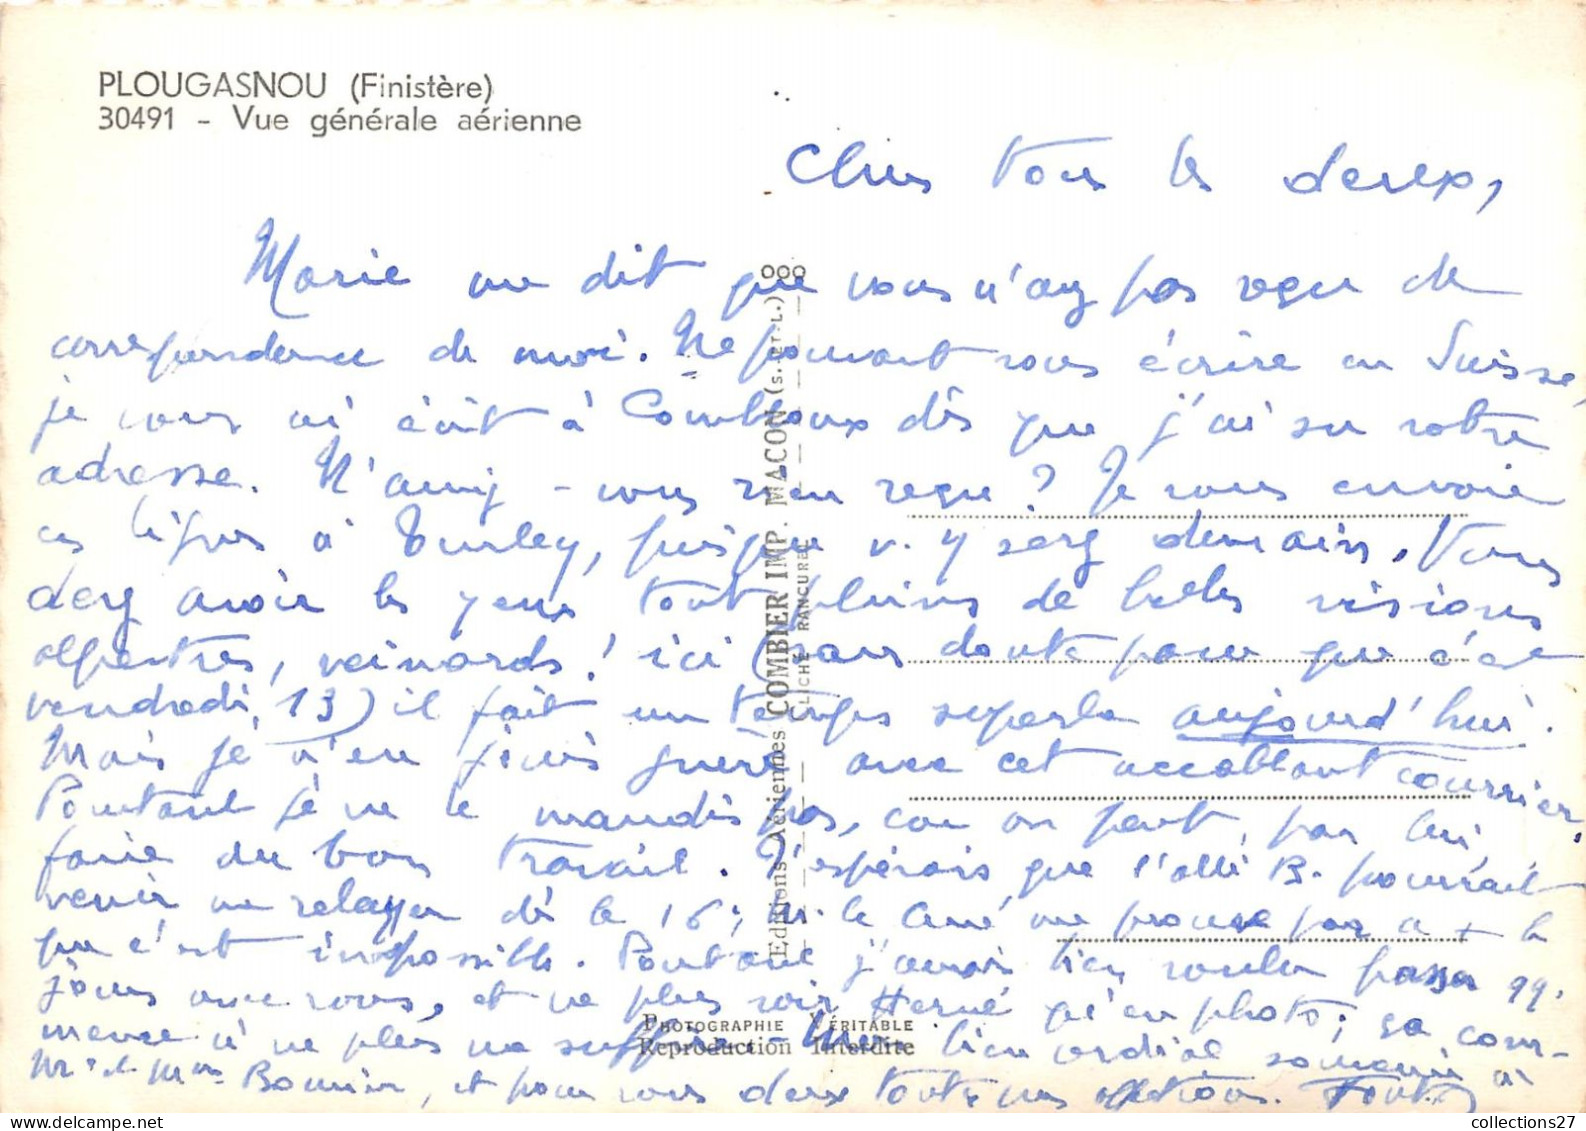 PLOUGASNOU (Finistère)
30491 - Vue générale aérienne
Chers tous les deux,
Marie me dit que vous n'avez pas reçu de
correspondance de moi. Ne pouvant vous écrire en Suisse,
je vous ai écrit à Combloux dès que j'ai su votre
adresse. N'avez-vous rien reçu ? Je vous envoie
ces lignes à puisque v. y serez demain. Vous
devez avoir les yeux tout pleins de belles visions
alpestres, veinards ! ici (sans doute parce que c'est
vendredi, 13) il fait un temps superbe aujourd'hui.
Mais je n'en jouis guère avec cet accablant courrier.
Pourtant je ne le maudis pas, car on peut, par lui
faire du bon travail. J'espérais que l'abbé B. pourrait
venir me relayer dès le 16 ; M. le Curé me prouve par a + b
que c'est impossible. Pourtant j'aurais bien voulu passer qq.
jours avec vous, et ne plus voir Hervé qu'en photo ; ça com-
mence à ne plus me suffire - Mon bien cordial souvenir à
Mr et Mme et pour vous deux toutes mes affections.
Editions Aériennes COMBIER IMP. MACON (S.-ET-L.)
CLICHÉ RANCUREL
PHOTOGRAPHIE VÉRITABLE
Reproduction Interdite
collections27